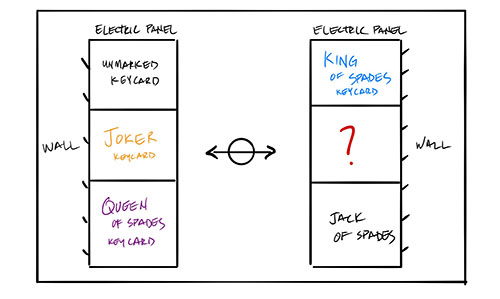 ELECTRIC PANEL
UNMARKED
KEYCARD
WALL
JOKER
KEYCARD
QUEEN
OF SPADES
KEYCARD
ELECTRIC PANEL
KING
OF SPADES
KEYCARD
?
WALL
JACK
OF SPADES